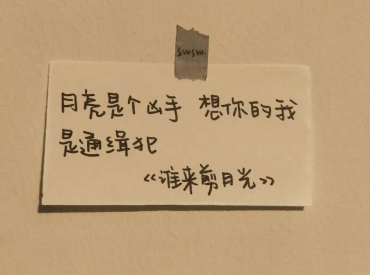 月亮是个凶手 想你的我
是通缉犯
《谁来剪月光》